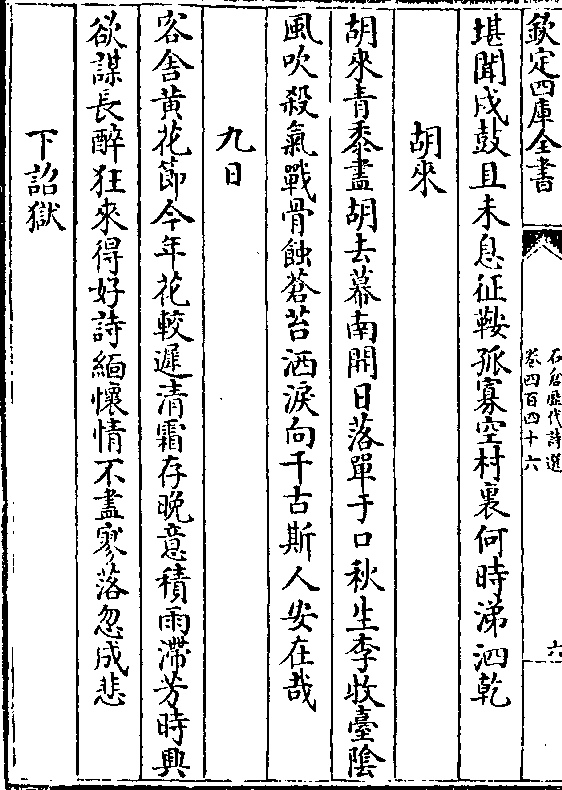 欽定四庫全書
石倉歷代詩選
卷四百四十六
六
堪聞戍鼓且未息征鞍孤寡空村裏何時涕泗乾
胡來
胡來青黍盡胡去幕南開日落單于口秋生李收臺陰
風吹殺氣戰骨蝕蒼苔洒淚向千古斯人安在哉
九日
客舍黄花節今年花較遲清霜存晚意積雨滯芳時興
欲謀長醉狂來得好詩緬懷情不盡寥落忽成悲
下詔獄